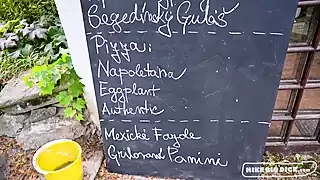 Segedínský Guláš
Pizza:
Napoletana
Eggplant
Authentic
Mexické Fazole
Grilované Panini
MIKEBIGDICK.COM